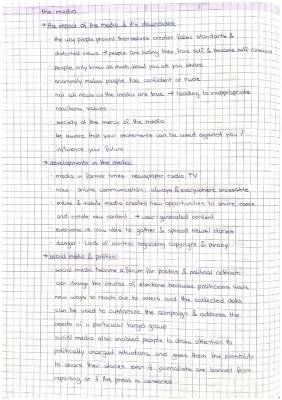 the media
→ the impact of the media & it's downsides:
the way people present themselves creates false standards &
distorted views → people are hiding their true self & become self-conscious
people only know as much about you as you share
anonymity makes people too confident or rude
not all news in the media are true → leading to inappropriate
reactions, values ...
society at the mercy of the media
be aware that your statements can be used against you /
influence your future
→ developments in the media:
media in former times: newspaper, radio, TV
now: online communication: always & everywhere accessible
online & mobile media created new opportunities to share, create
and create new content → user-generated content
everyone is now able to gather & spread news/ stories
danger: Lack of control regarding copyright & piracy
→ social media & politics:
social media became a forum for politics & political activism
can change the course of elections because politicians have
new ways to reach out to voters and the collected data
can be used to customize the campaign & address the
needs of a particular target group
social media also enabled people to draw attention to
politically charged situations and gives them the possibility
to share their stories even if journalists are banned from
reporting or if the press is censored